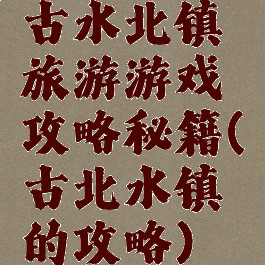 古水北镇
旅游游戏
攻略秘籍(
古北水镇
的攻略)